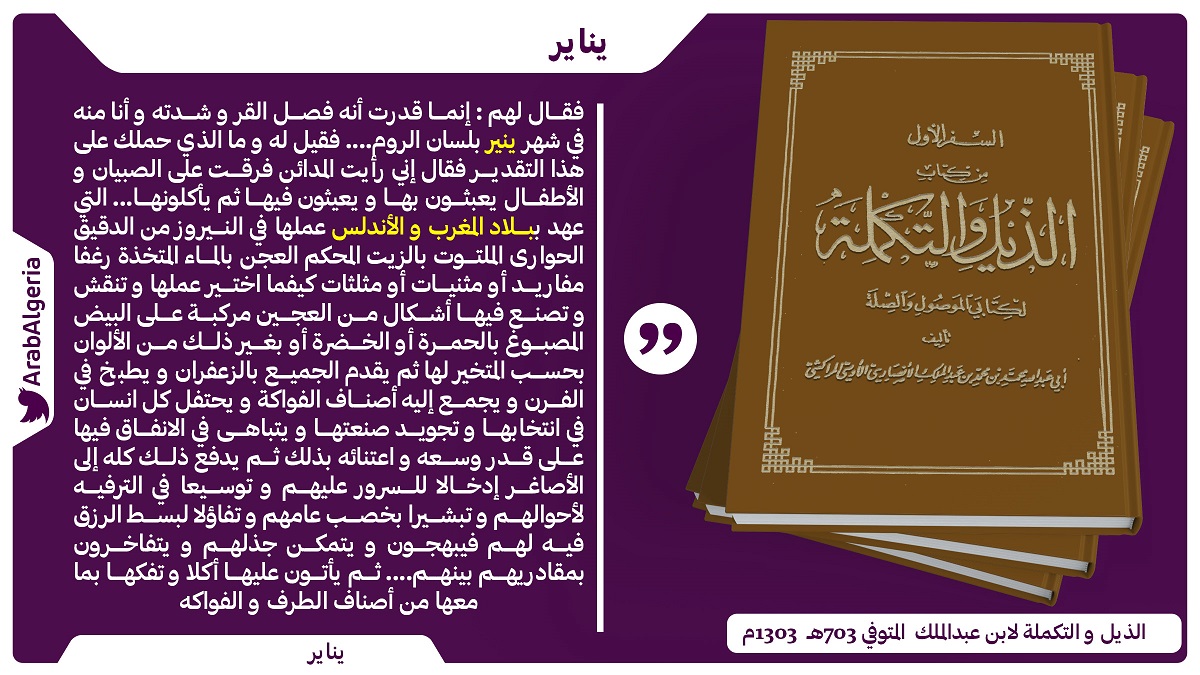 يناير
فقال لهم : إنما قدرت أنه فصل القر و شدته و أنا منه
في شهر ينير بلسان الروم.... فقيل له و ما الذي حملك على
هذا التقدير فقال إني رأيت المدائن فرقت على الصبيان و
الأطفال يعبثون بها و يعيثون فيها ثم يأكلونها... التي
عهد ببلاد المغرب و الأندلس عملها في النيروز من الدقيق
الحوارى الملتوت بالزيت المحكم العجن بالماء المتخذة رغفا
مفاريد أو مثنيات أو مثلثات كيفما اختير عملها و تنقش
و تصنع فيها أشكال من العجين مركبة على البيض
المصبوغ بالحمرة أو الخضرة أو بغير ذلك من الألوان
بحسب المتخير لها ثم يقدم الجميع بالزعفران و يطبخ في
الفرن و يجمع إليه أصناف الفواكة و يحتفل كل انسان
في انتخابها و تجويد صنعتها و يتباهى في الانفاق فيها
على قدر وسعه و اعتنائه بذلك ثم يدفع ذلك كله إلى
الأصاغر إدخالا للسرور عليهم و توسيعا في الترفيه
لأحوالهم و تبشيرا بخصب عامهم و تفاؤلا لبسط الرزق
فيه لهم فيبهجون و يتمكن جذلهم و يتفاخرون
بمقاديرهم بينهم.... ثم يأتون عليها أكلا و تفكها بما
معها من أصناف الطرف و الفواكه
يناير
ArabAlgeria
السفر الأول
من كتاب
الذيل والتكملة
لكتابي الموصول والصلة
تأليف
أبي عبد الله محمد بن محمد بن عبد الملك الأنصاري الأوسي المراكشي
الذيل و التكملة لابن عبدالملك المتوفي 703هـ 1303م